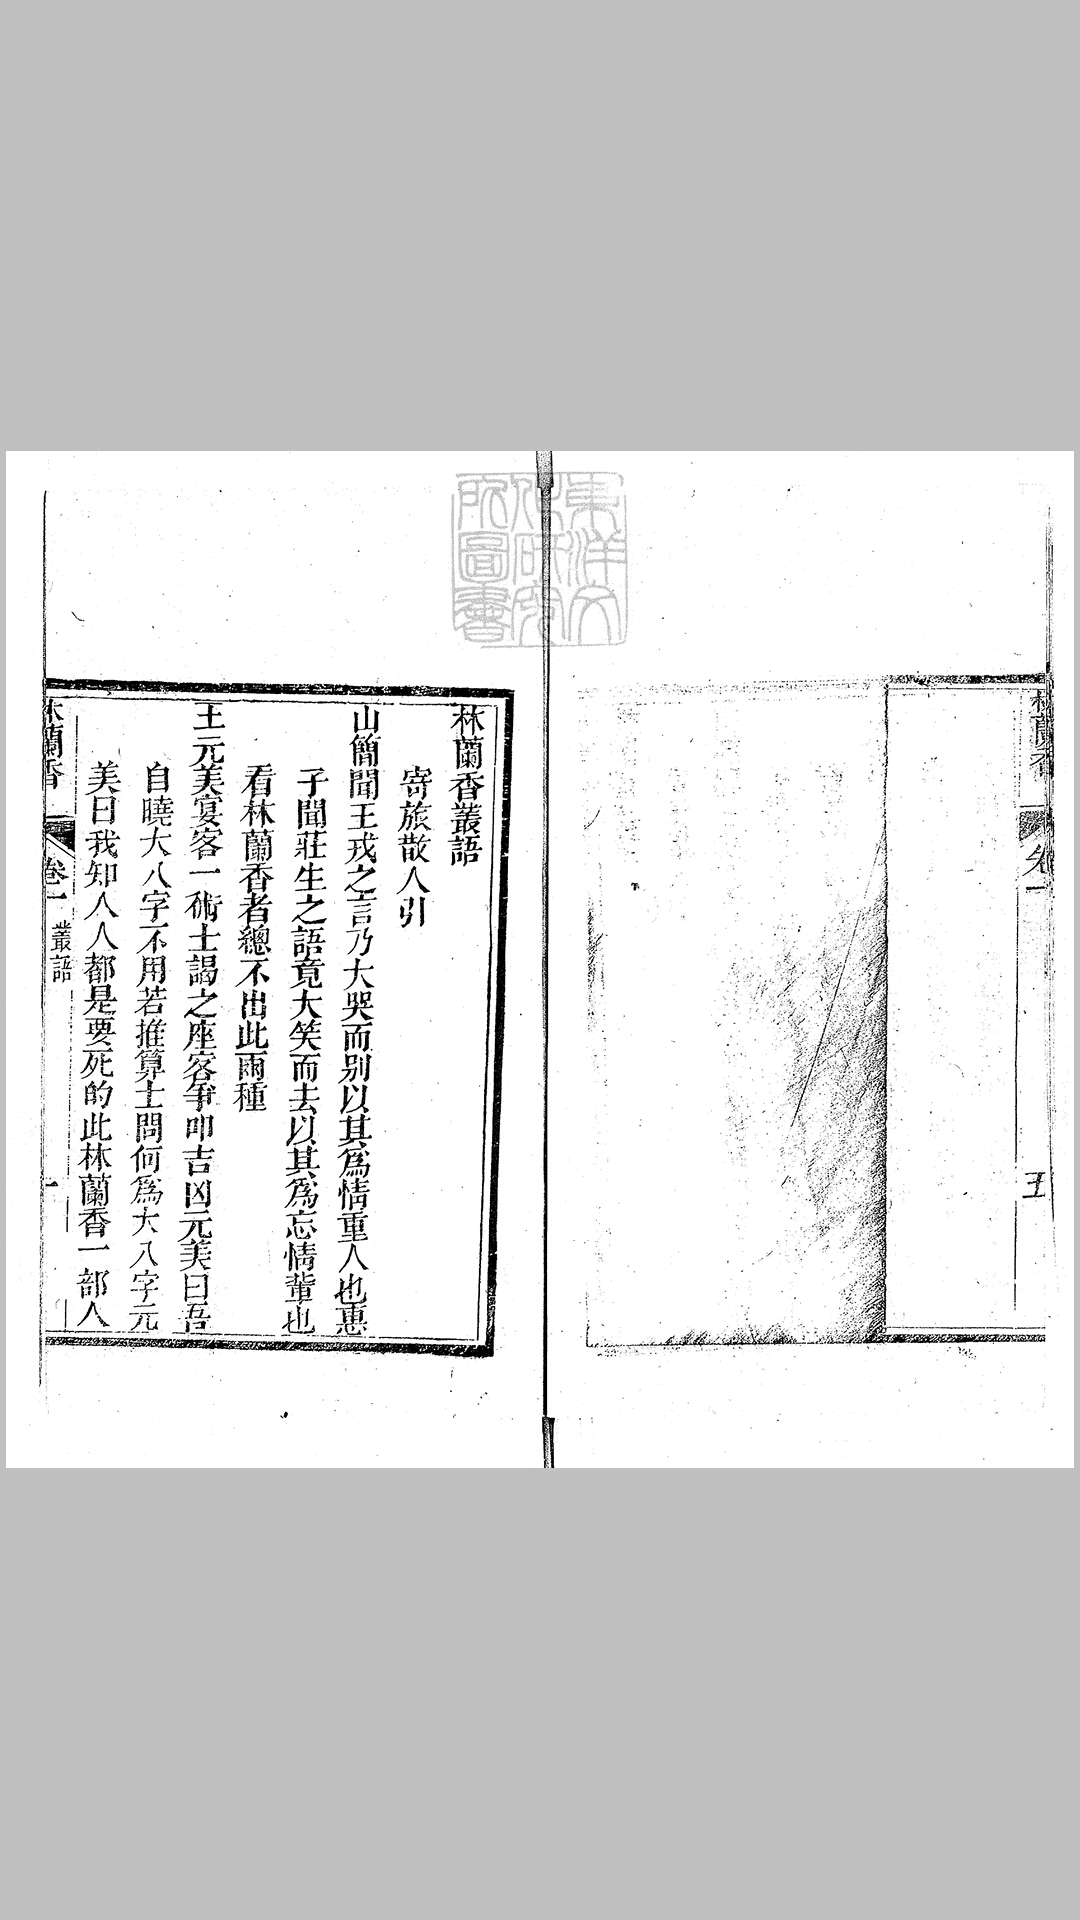 林蘭香
卷一
五
東洋文
化研究
所圖書
林蘭香叢語
寄旅散人引
山簡聞王戎之言乃大哭而別以其為情重人也惠
子聞莊生之語竟大笑而去以其為忘情輩也
看林蘭香者總不出此兩種
王元美宴客一術士謁之座客爭叩吉凶元美曰吾
自曉大八字不用若推算士問何為大八字元
美曰我知人人都是要死的此林蘭香一部人
林蘭香
卷一
叢語
一